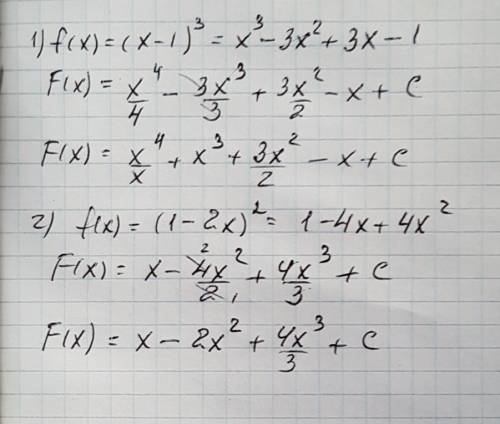 1) f(x) = (x-1)^3 = x^3 - 3x^2 + 3x - 1
F(x) = x^4/4 - 3x^3/3 + 3x^2/2 - x + C
F(x) = x^4/x + x^3 + 3x^2/2 - x + C
2) f(x) = (1-2x)^2 = 1 - 4x + 4x^2
F(x) = x - 4x^2/2 + 4x^3/3 + C
F(x) = x - 2x^2 + 4x^3/3 + C